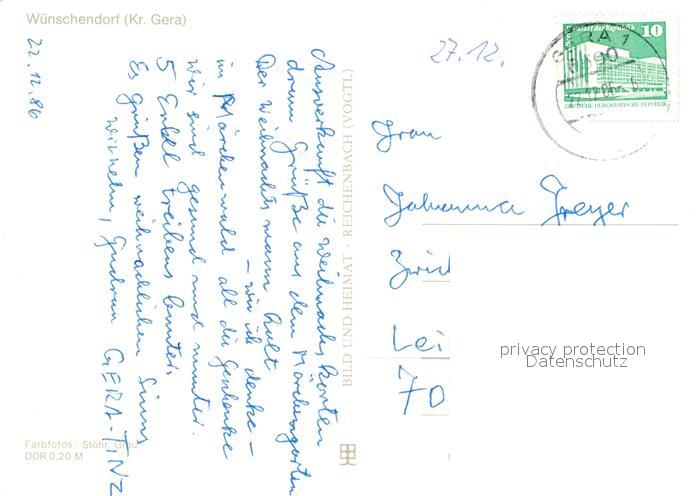 Wünschendorf (Kr. Gera)
22.12.86
Ausverkauft die Weihnachtskarten
drum Grüße aus dem Märchengarten
Der Weihnachtsmann holt
– wie ich denke –
im Märchenwald all die Geschenke
Wir sind gesund und munter.
5 Enkel treibens bunter.
Es grüßen weihnachtlichen Sinns
Wilhelm, Gudrun GERA-TINZ
Farbfotos: Stöhr, Greiz
DDR 0,20 M
BILD UND HEIMAT · REICHENBACH (VOGTL)
27.12.
Palast der Republik 10
DEUTSCHE DEMOKRATISCHE REPUBLIK
GERA 1
Frau
Johanna Freyer
Lei
70
privacy protection
Datenschutz